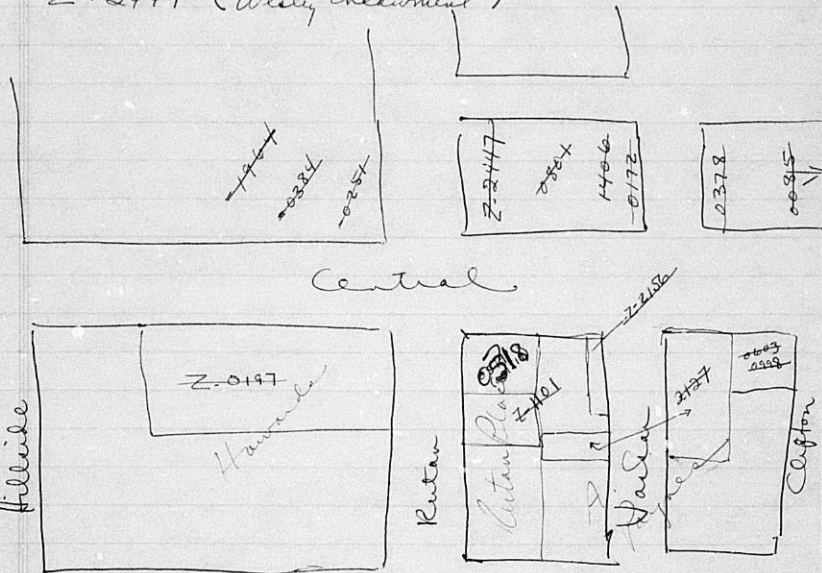 Z-2447 (Wesley
-1964
-0384
-0251
Z-2447
0804
1406
-0172
0378
00815
Central
Z-2156
Z-0197
Howards
0318
Z-1101
2127
0603
0998
Hillside
Rutan
Rutan Place
Vassar
Clifton